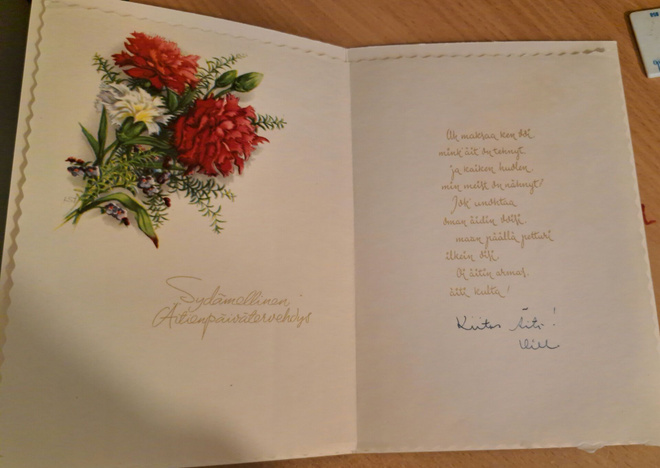 Sydämellinen
Äitienpäivätervehdys
Oh maksaa ken voi
mink' äit on tehnyt
ja kaiken huolen
min meist' on nähnyt?
Jok' unohtaa
oman äidin
maan päällä
ilkein olisi
Oi äitin armas,
äiti kulta!
Kiitos Äiti!